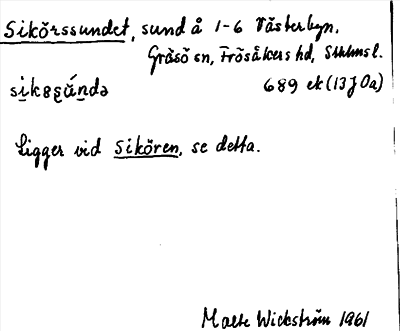 Sikörssundet, sund å 1-6 Västerbyn.
Gräsö sn, Frösåkers hd, Sthlms l.
689 ek (13J 0a)
Ligger vid Sikören, se detta.
Malte Wickström 1961